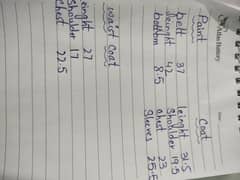 Atlas Battery
Paint
Coat
belt 37
leinght 31.5
leinght 42
Shoulder 19.5
bottom 8.5
chest 23
Sleeves 25.5
waist Coat
leinght 27
Shoulder 17
chest 22.5